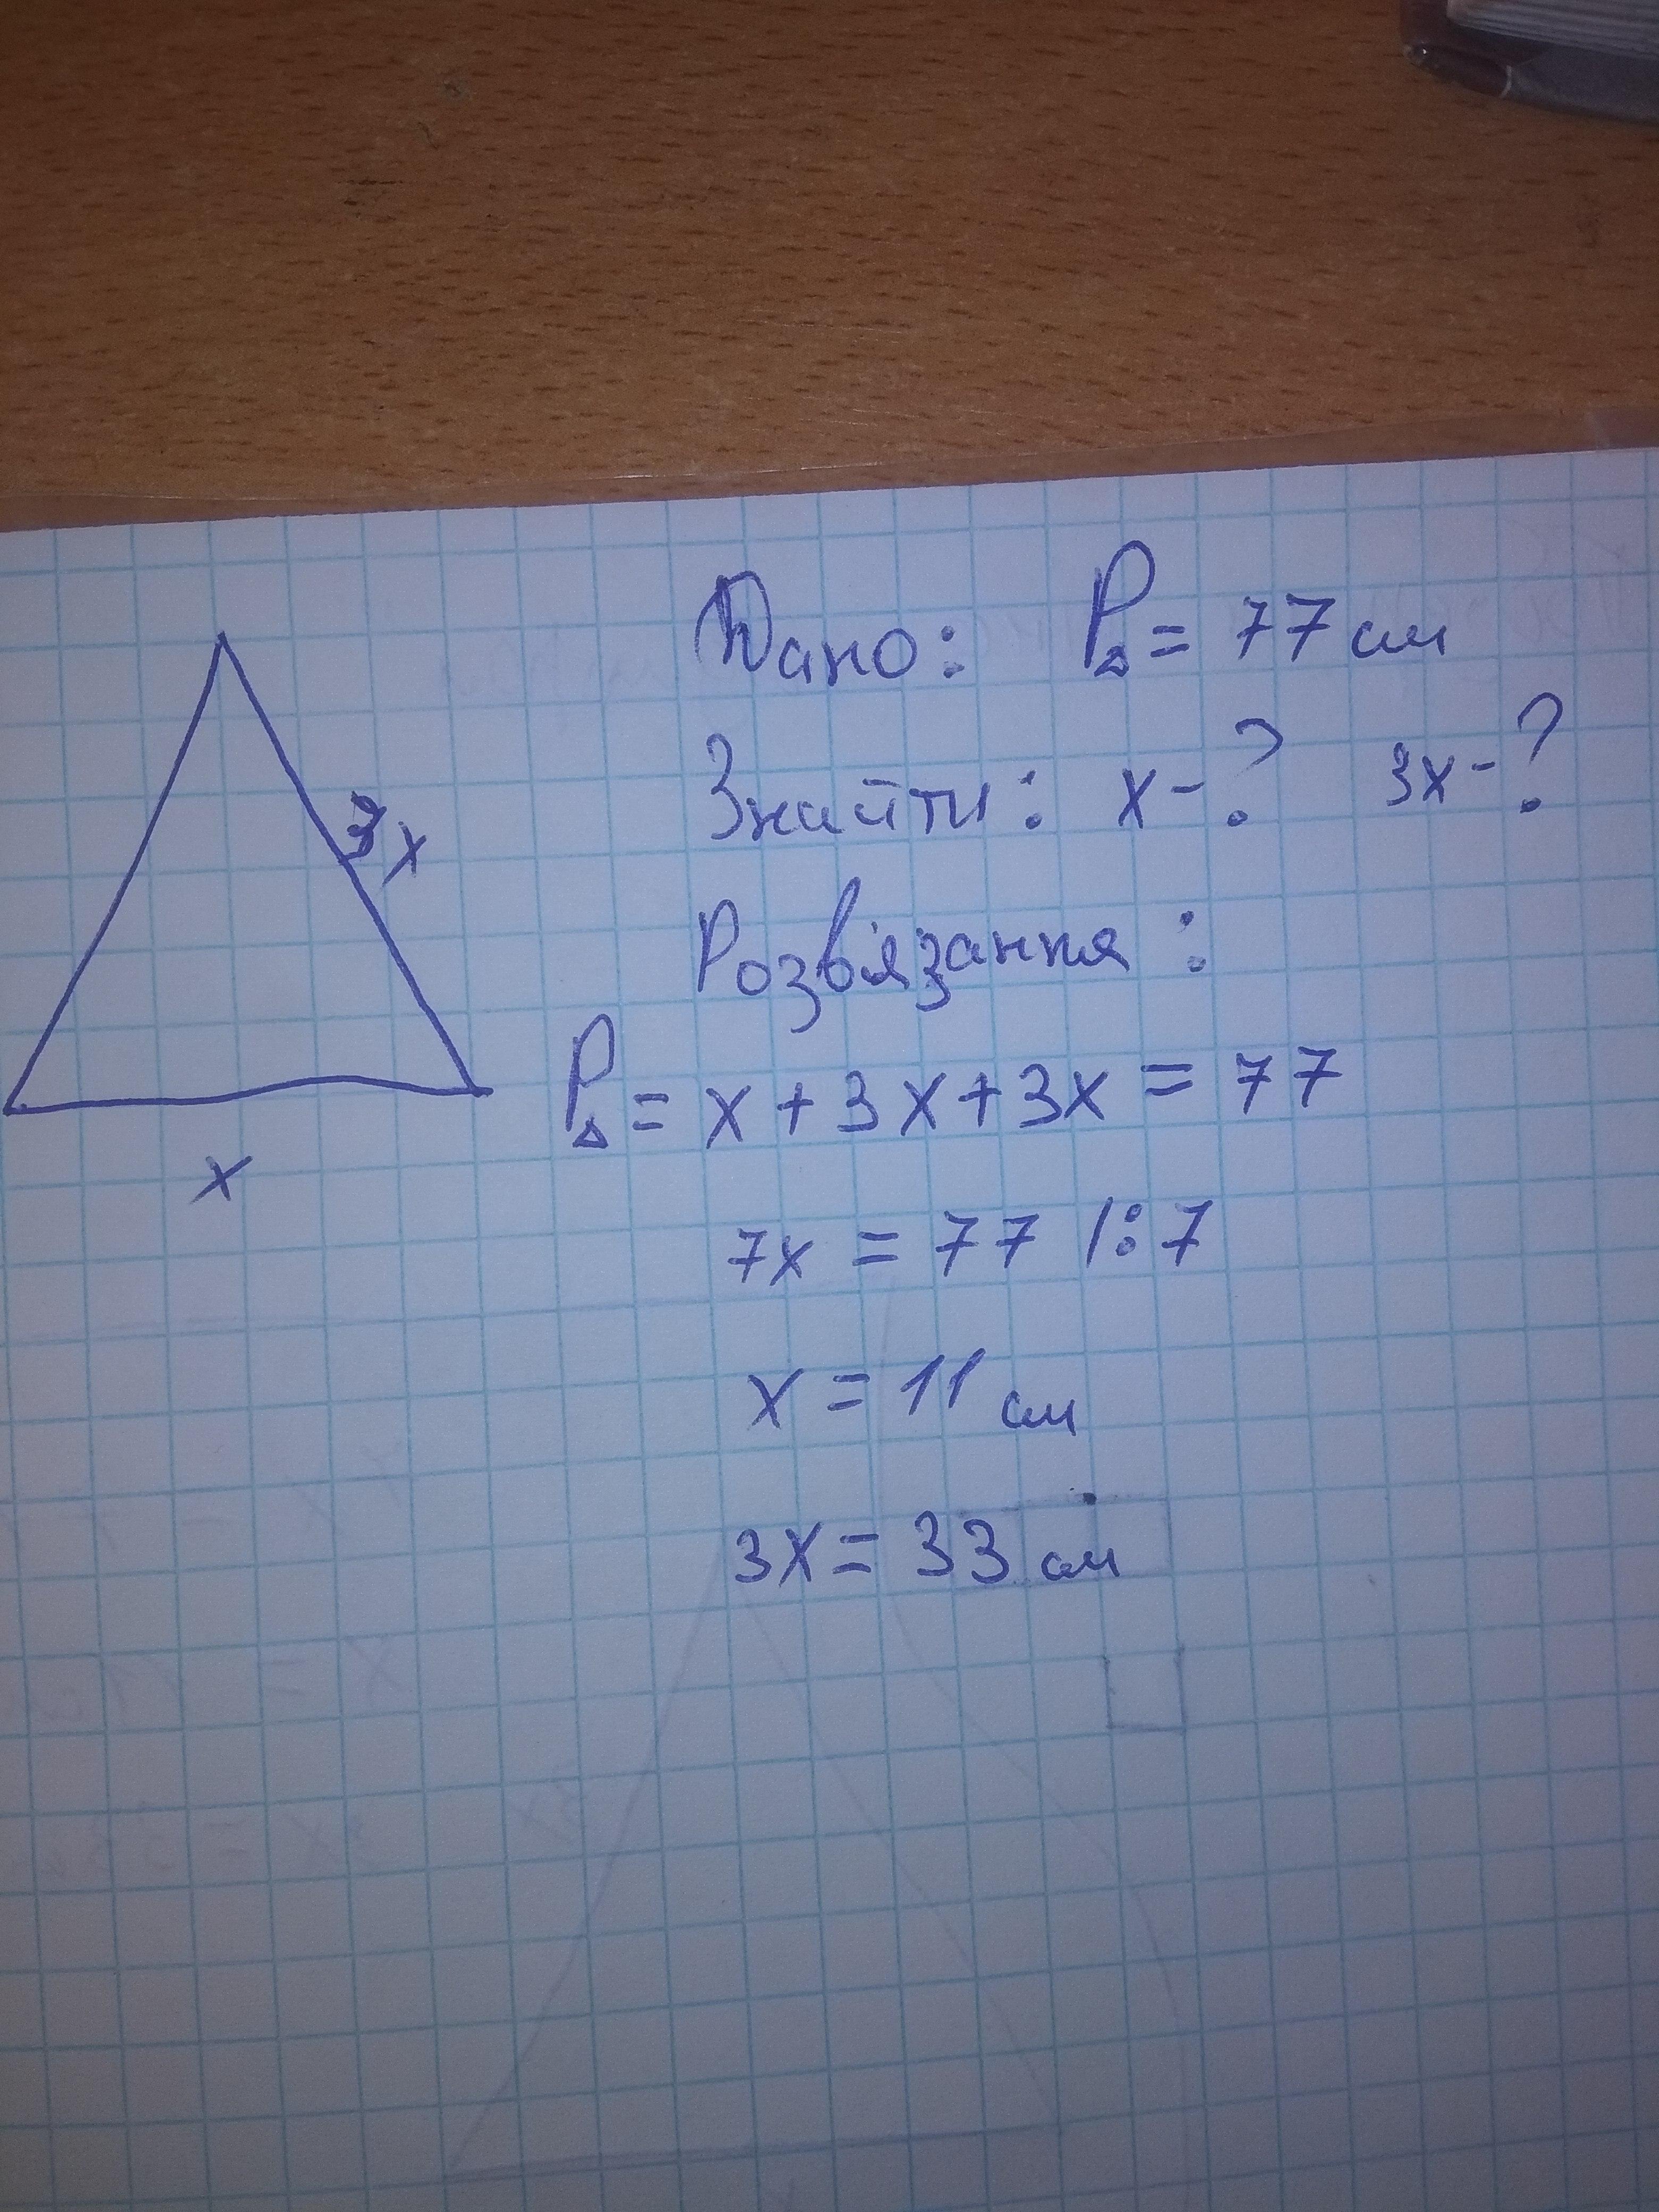 Дано: P△ = 77 см
Знайти: x - ? 3x - ?
Розв'язання:
3x
P△ = x + 3x + 3x = 77
x
7x = 77 |:7
x = 11 см
3x = 33 см